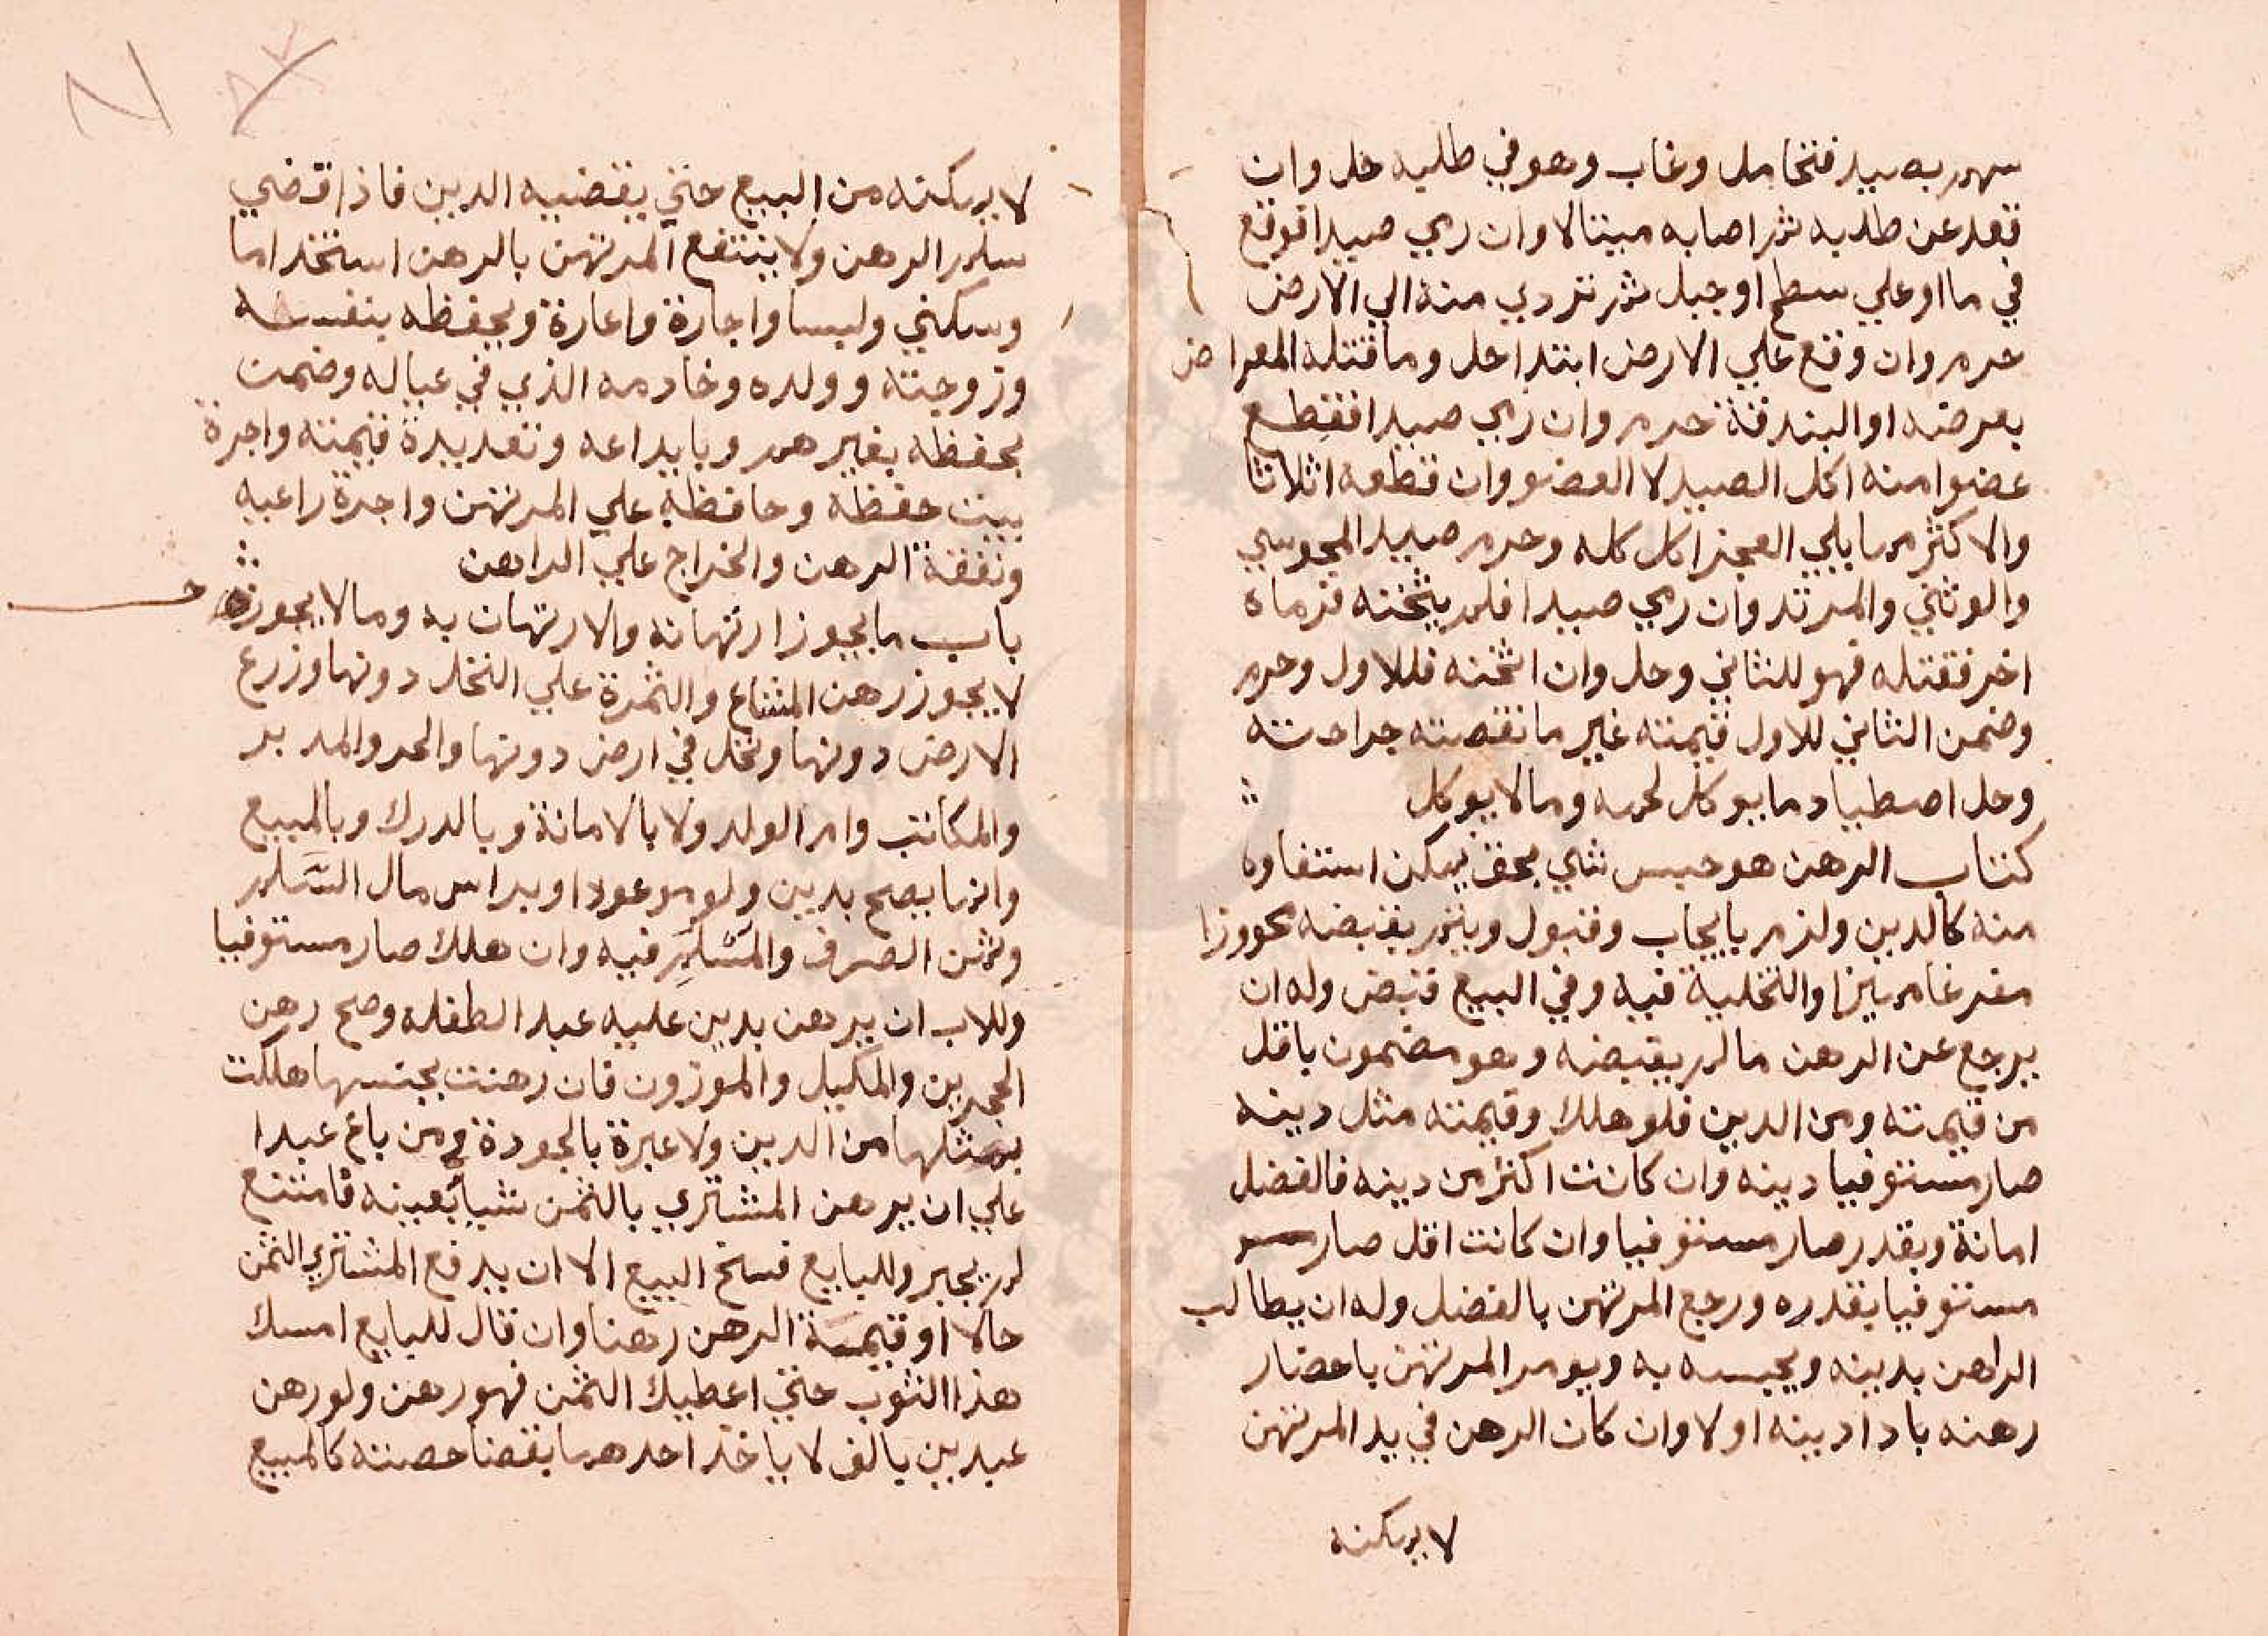 سهم بصيد فتحامل وغاب وهو في طلبه حل وان
قعد عن طلبه ثم اصابه ميتا لا وان رمي صيدا فوقع
في ما او علي سطح او جبل ثم تردي منه الي الارض
حرم وان وقع علي الارض ابتدا حل وما قتله المعراض
بعرضه او البندقة حرم وان رمي صيدا فقطع
عضوا منه اكل الصيد لا العضو وان قطعه اثلاثا
والاكثر مما يلي العجز اكل كله وحرم صيد المجوسي
والوثني والمرتد وان رمي صيدا فلم يثخنه فرماه
اخر فقتله فهو للثاني وحل وان اثخنه فللاول وحرم
وضمن الثاني للاول قيمته غير ما نقصته جراحته
وحل اصطياد ما يوكل لحمه وما لا يوكل
كتاب الرهن هو حبس شي بحق يمكن استفاوه
منه كالدين ولزم بايجاب وقبول ويتم بقبضه محووزا
مفرغا مميزا والتخلية فيه وفي البيع قبض وله ان
يرجع عن الرهن ما لم يقبضه وهو مضمون باقل
من قيمته ومن الدين فلو هلك وقيمته مثل دينه
صار مستوفيا دينه وان كانت اكثر من دينه فالفضل
امانة وبقدر صار مستوفيا وان كانت اقل صار
مستوفيا بقدره ورجع المرتهن بالفضل وله ان يطالب
الراهن بدينه ويحبسه به ويومر المرتهن باحضار
رهنه بادا دينه اولا وان كان الرهن في يد المرتهن
لا يمكنه
لا يمكنه من البيع حتي يقضيه الدين فاذا قضي
سلم الرهن ولا ينتفع المرتهن بالرهن استخداما
وسكني ولبسا واجارة واعارة ويحفظه بنفسه
وزوجته وولده وخادمه الذي في عياله وضمن
بحفظه بغيرهم وبايداعه وتعديدة قيمته واجرة
بيت حفظه وحافظه علي المرتهن واجرة راعيه
ونفقة الرهن والخراج علي الراهن
باب ما يجوز ارتهانه والارتهان به وما لا يجوز
لا يجوز رهن المشاع والثمرة علي النخل دونها وزرع
الارض دونها ونخل في ارض دونها والحر والمدبر
والمكاتب وام الولد ولا بالامانة وبالدرك وبالمبيع
وانما يصح بدين ولو موعودا وبراس مال السلم
وثمن الصرف والمسلم فيه وان هلك صار مستوفيا
وللاب ان يرهن بدين عليه عبد الطفله وصح رهن
الحجرين والمكيل والموزون فان رهنت بجنسها هلكت
بمثلها من الدين ولا عبرة بالجودة ومن باع عبدا
علي ان يرهن المشتري بالثمن شيا بعينه فامتنع
لم يجبر وللبايع فسخ البيع الا ان يدفع المشتري الثمن
حالا او قيمة الرهن رهنا وان قال للبايع امسك
هذا الثوب حتي اعطيك الثمن فهو رهن ولو رهن
عبدين بالف لا ياخذ احدهما بقضا حصته كالمبيع